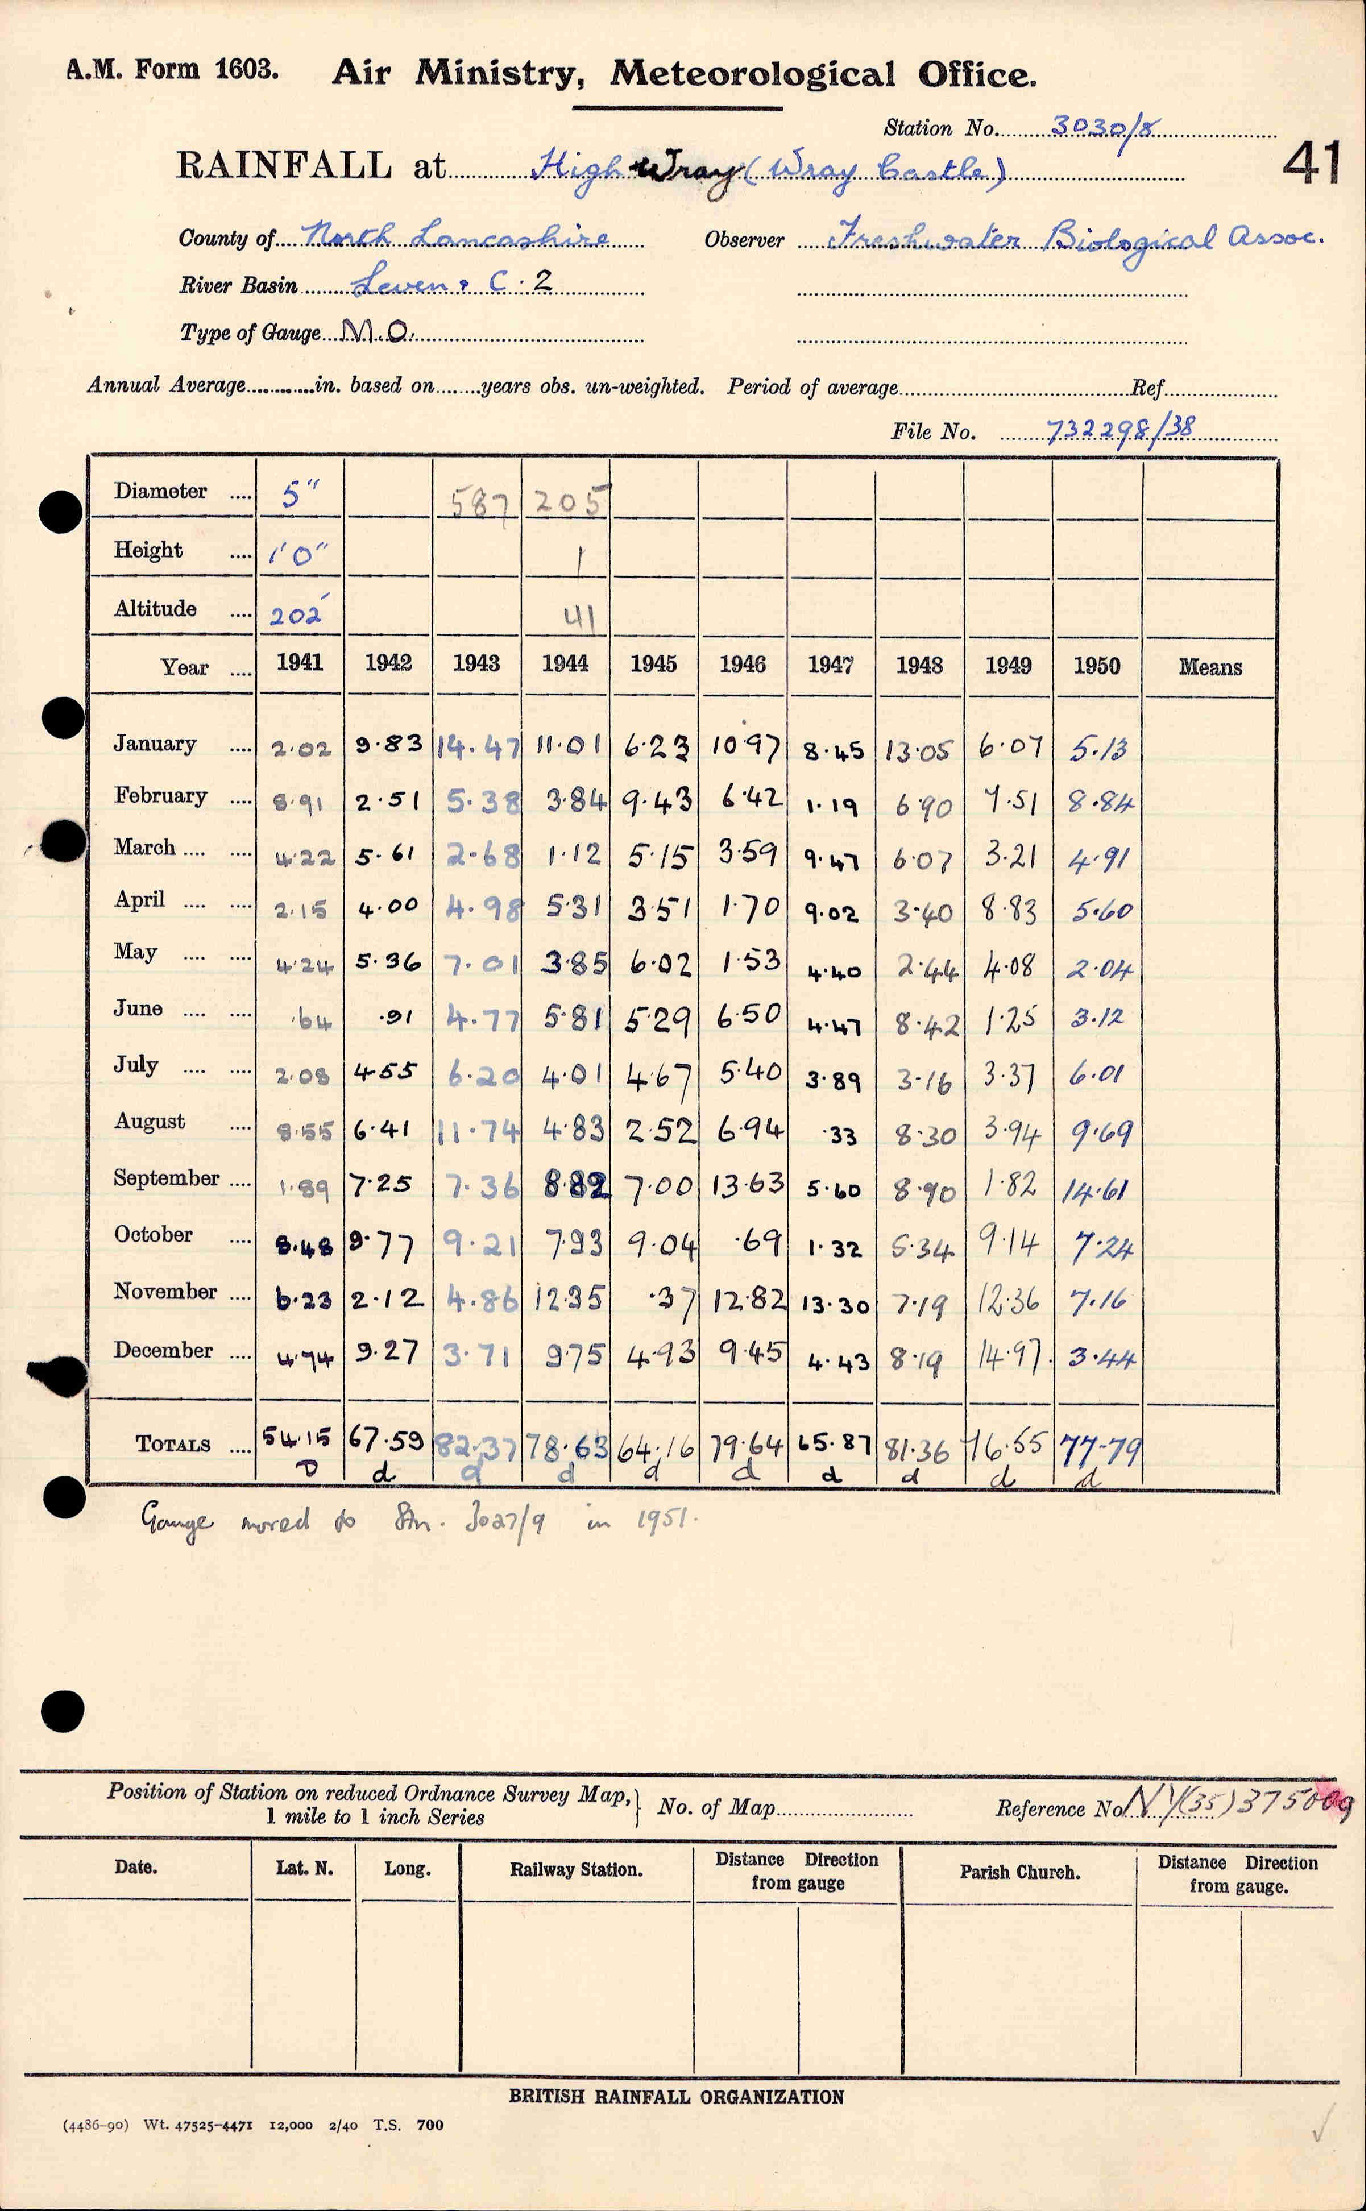 A.M. Form 1603. Air Ministry, Meteorological Office.
Station No. 3030/8
41
RAINFALL at High Wray (Wray Castle)
County of North Lancashire Observer Freshwater Biological Assoc.
River Basin Leven & C.2
Type of Gauge M.O.
Annual Average............in. based on........years obs. un-weighted. Period of average............Ref............
File No. 732298/38
Diameter .... 5" 587 205
Height .... 1'0" 1
Altitude .... 202' 41
Year .... 1941 1942 1943 1944 1945 1946 1947 1948 1949 1950 Means
January .... 2.02 9.83 14.47 11.01 6.23 10.97 8.45 13.05 6.07 5.13
February .... 8.91 2.51 5.38 3.84 9.43 6.42 1.19 6.90 7.51 8.84
March .... .... 4.22 5.61 2.68 1.12 5.15 3.59 9.47 6.07 3.21 4.91
April .... .... 2.15 4.00 4.98 5.31 3.51 1.70 9.02 3.40 8.83 5.60
May .... .... 4.24 5.36 7.01 3.85 6.02 1.53 4.40 2.44 4.08 2.04
June .... .... .64 .91 4.77 5.81 5.29 6.50 4.47 8.42 1.25 3.12
July .... .... 2.08 4.55 6.20 4.01 4.67 5.40 3.89 3.16 3.37 6.01
August .... 8.55 6.41 11.74 4.83 2.52 6.94 .33 8.30 3.94 9.69
September .... 1.89 7.25 7.36 8.82 7.00 13.63 5.60 8.90 1.82 14.61
October .... 8.48 9.77 9.21 7.93 9.04 .69 1.32 5.34 9.14 7.24
November .... 6.23 2.12 4.86 12.35 .37 12.82 13.30 7.19 12.36 7.16
December .... 4.74 9.27 3.71 9.75 4.93 9.45 4.43 8.19 14.97 3.44
TOTALS .... 54.15 67.59 82.37 78.63 64.16 79.64 65.87 81.36 76.55 77.79
D d d d d d d d d d
Gauge moved to Stn. 3027/9 in 1951.
Position of Station on reduced Ordnance Survey Map,
1 mile to 1 inch Series
No. of Map............ Reference No. NY(35)375009
Date. Lat. N. Long. Railway Station. Distance Direction from gauge Parish Church. Distance Direction from gauge.
BRITISH RAINFALL ORGANIZATION
(4486-90) Wt. 47525-4471 12,000 2/40 T.S. 700